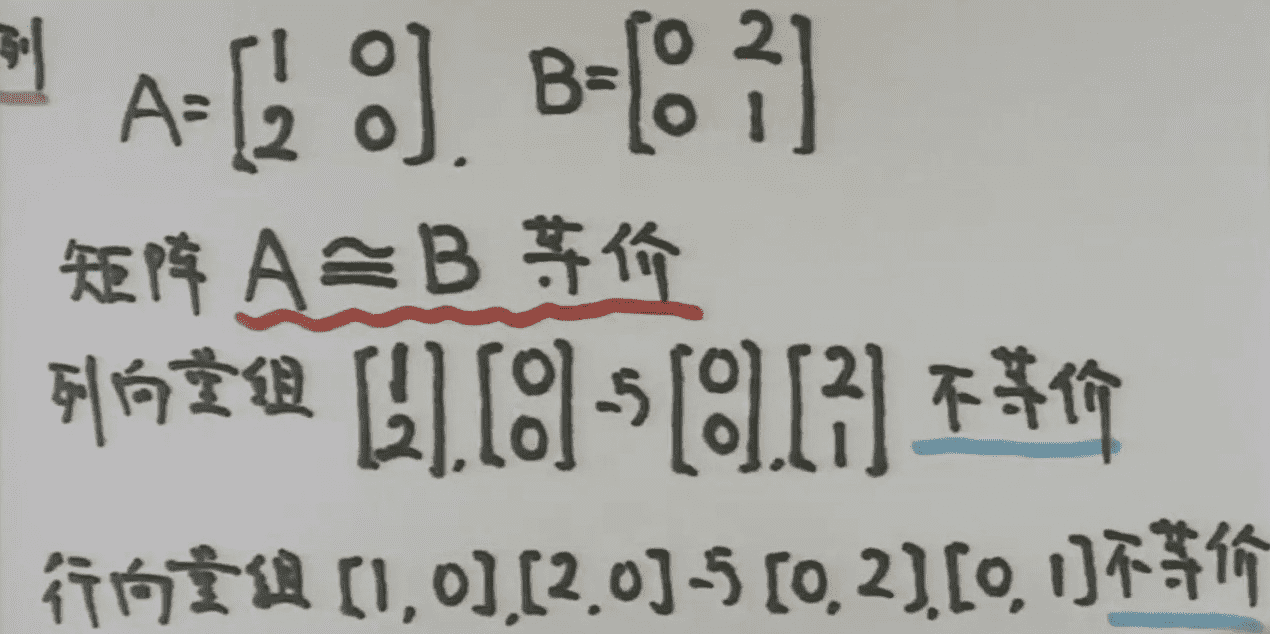 列 A=[1 0; 2 0]. B=[0 2; 0 1]
矩阵 A≅B 等价
列向量组 [1; 2],[0; 0]与[0; 0],[2; 1] 不等价
行向量组 [1,0],[2,0]与[0,2],[0,1]不等价